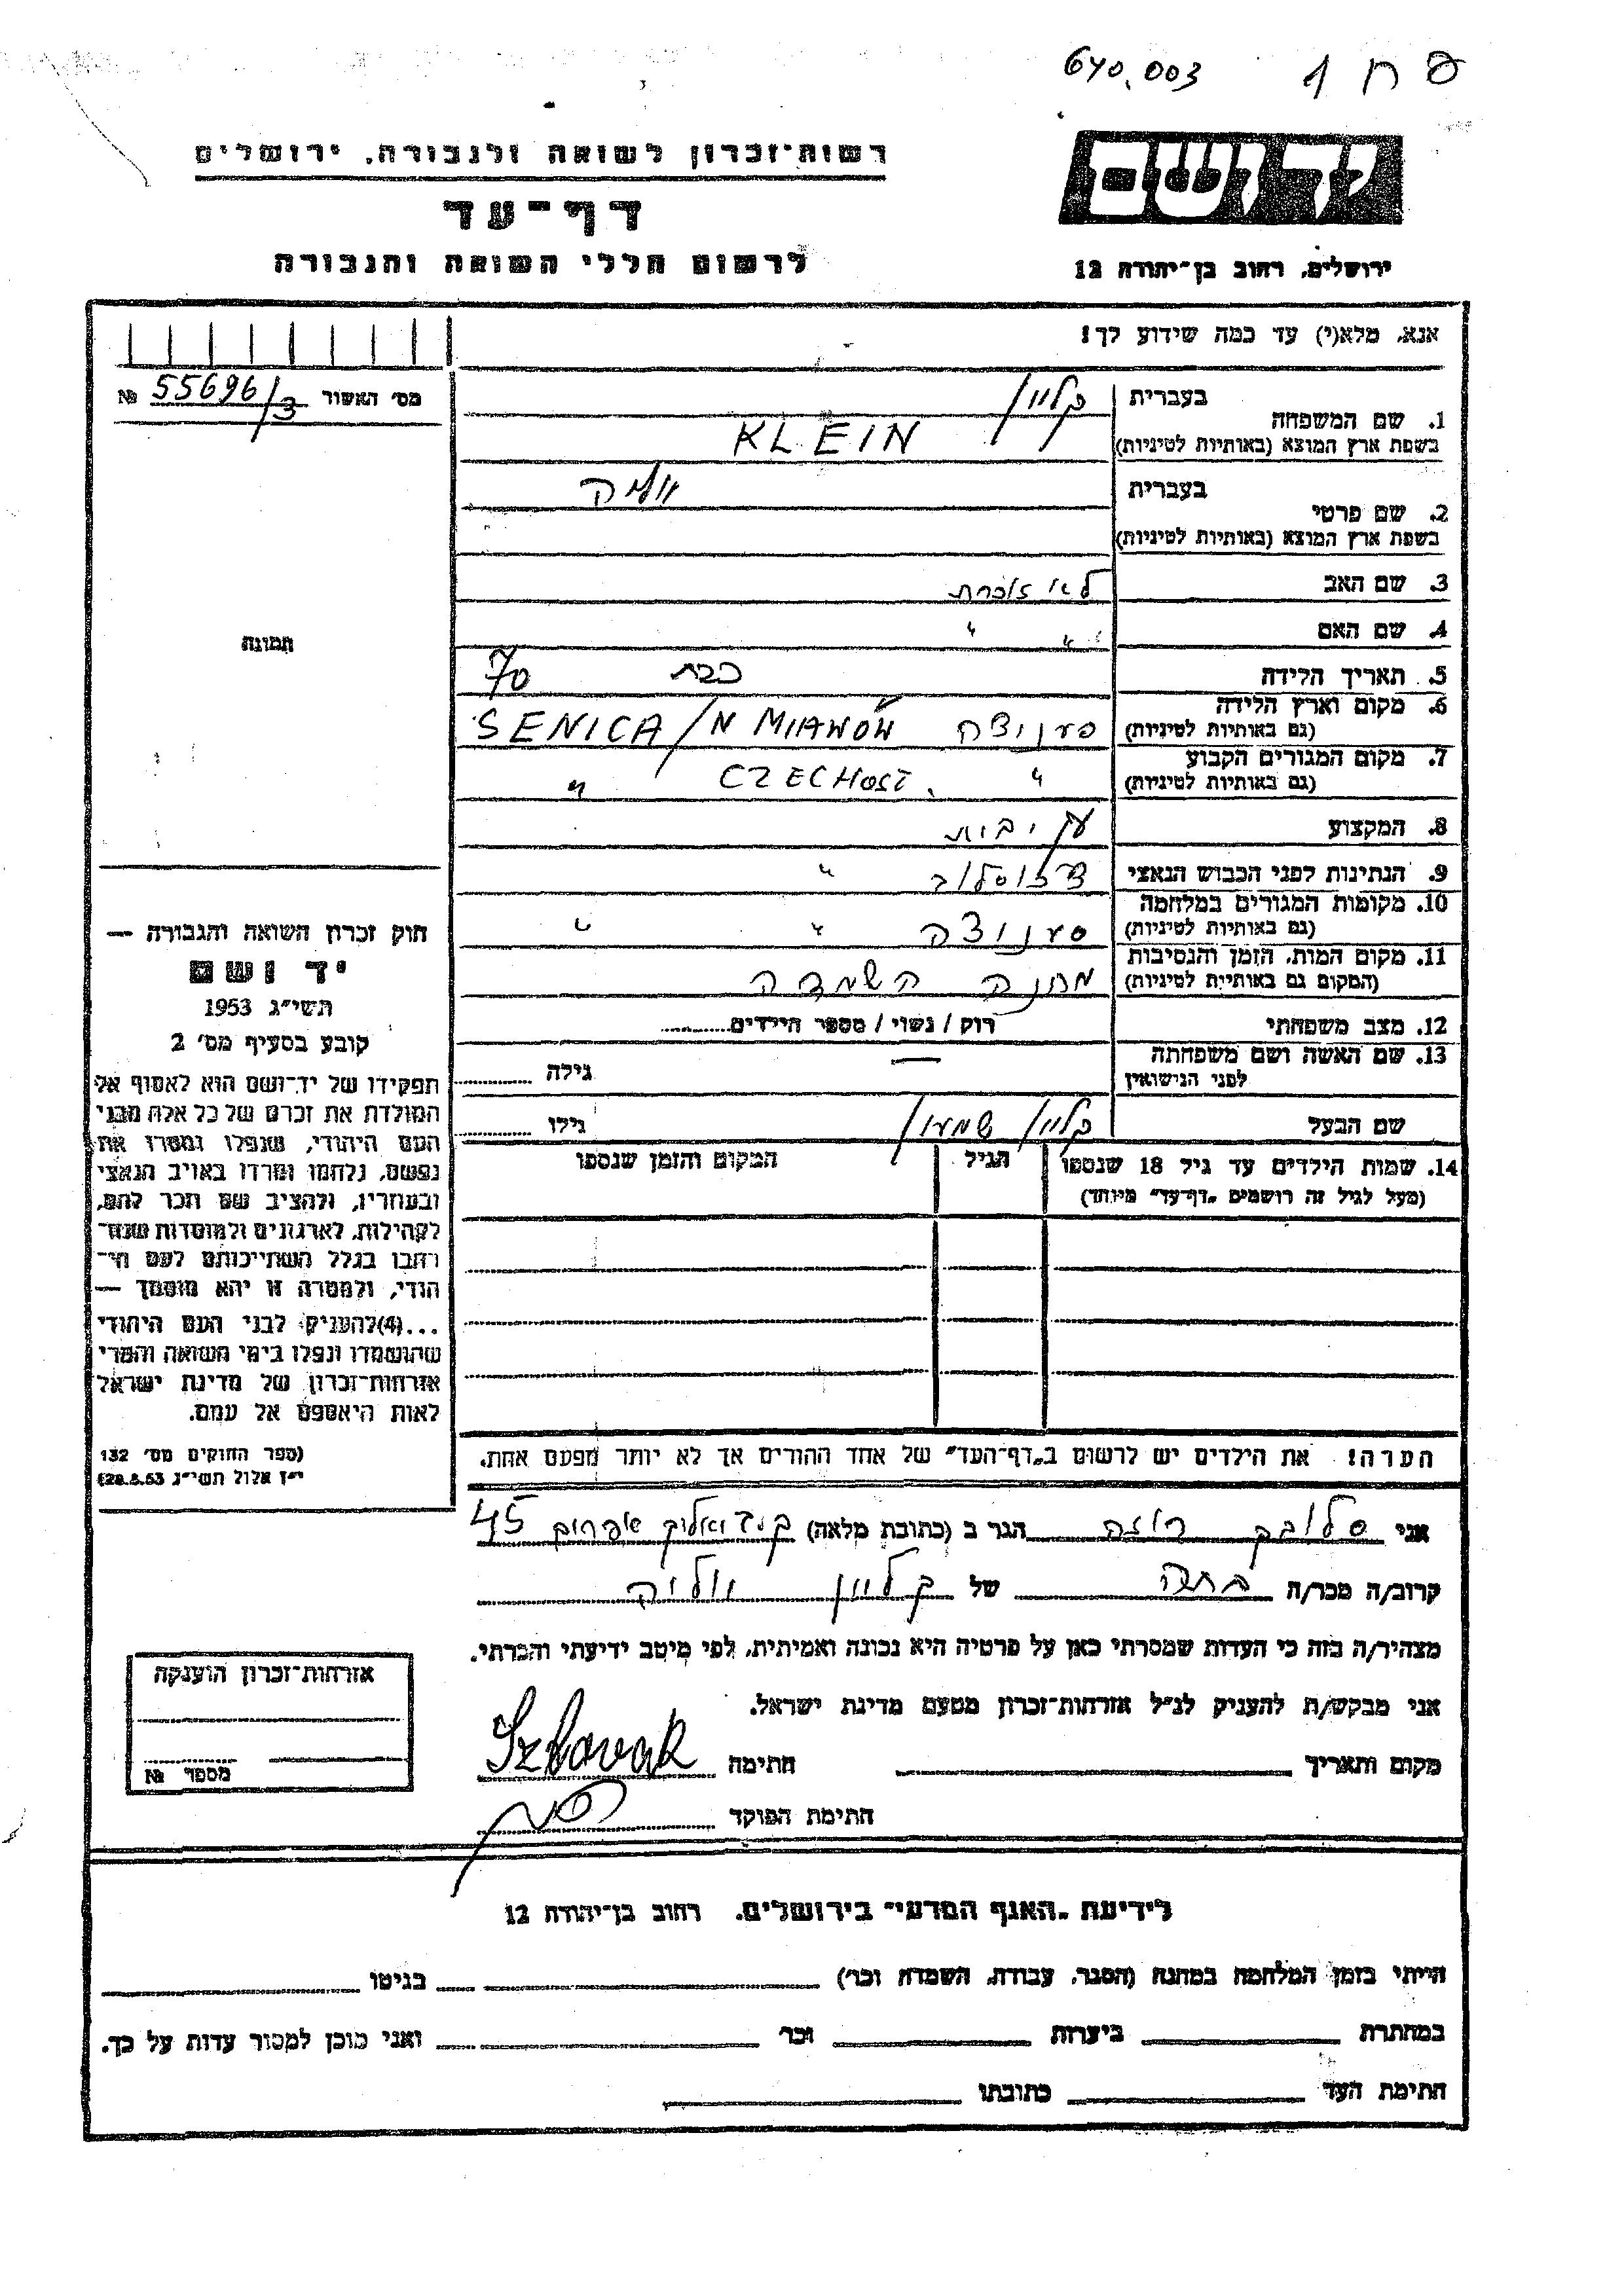 670.003
רשות-זכרון לשואה ולגבורה, ירושלים
דף-עד
לרשום חללי השואה והגבורה
יד ושם
ירושלים, רחוב בן-יהודה 12
אנא, מלא(י) עד כמה שידוע לך!
מס׳ האשור 55696/3 №
1. שם המשפחה
בעברית קליין
בשפת ארץ המוצא (באותיות לטיניות) KLEIN
2. שם פרטי
בעברית
בשפת ארץ המוצא (באותיות לטיניות)
3. שם האב לא זוכרת
4. שם האם " "
5. תאריך הלידה כבת 70
6. מקום וארץ הלידה סנוצה SENICA/N
(גם באותיות לטיניות)
7. מקום המגורים הקבוע " CZECHOSŁ. "
(גם באותיות לטיניות)
8. המקצוע
9. הנתינות לפני הכבוש הנאצי "
10. מקומות המגורים במלחמה " "
(גם באותיות לטיניות)
11. מקום המות, הזמן והנסיבות מחנה השמדה
(המקום גם באותיות לטיניות)
12. מצב משפחתי רוק / נשוי / מספר הילדים
13. שם האשה ושם משפחתה — גילה
לפני הנישואין
שם הבעל קליין שמעון גילו
14. שמות הילדים עד גיל 18 שנספו הגיל המקום והזמן שנספו
(מעל לגיל זה רושמים „דף-עד״ מיוחד)
הערה! את הילדים יש לרשום ב„דף-העד״ של אחד ההורים אך לא יותר מפעם אחת.
תמונה
חוק זכרון השואה והגבורה —
יד ושם
תשי״ג 1953
קובע בסעיף מס׳ 2
תפקידו של יד-ושם הוא לאסוף אל
המולדת את זכרם של כל אלה מבני
העם היהודי, שנפלו ומסרו את
נפשם, נלחמו ומרדו באויב הנאצי
ובעוזריו, ולהציב שם וזכר להם,
לקהילות, לארגונים ולמוסדות שנח-
רבו בגלל השתייכותם לעם הי-
הודי, ולמטרה זו יהא מוסמך —
...(4) להעניק לבני העם היהודי
שהושמדו ונפלו בימי השואה והמרי
אזרחות-זכרון של מדינת ישראל
לאות היאספם אל עמם.
(ספר החוקים מס׳ 132
י״ז אלול תשי״ג 28.8.53)
אני רוזה הגר ב (כתובת מלאה) 45
קרוב/ה מכר/ה של קליין
מצהיר/ה בזה כי העדות שמסרתי כאן על פרטיה היא נכונה ואמיתית, לפי מיטב ידיעתי והכרתי.
אני מבקש/ת להעניק לנ״ל אזרחות-זכרון מטעם מדינת ישראל.
מקום ותאריך חתימה Szlovak
חתימת הפוקד
אזרחות-זכרון הוענקה
מספר №
לידיעת „האגף המדעי״ בירושלים, רחוב בן-יהודה 12
הייתי בזמן המלחמה במחנה (הסגר, עבודה, השמדה וכו׳) בגיטו
במחתרת ביערות וכו׳ ואני מוכן למסור עדות על כך.
חתימת העד כתובתו